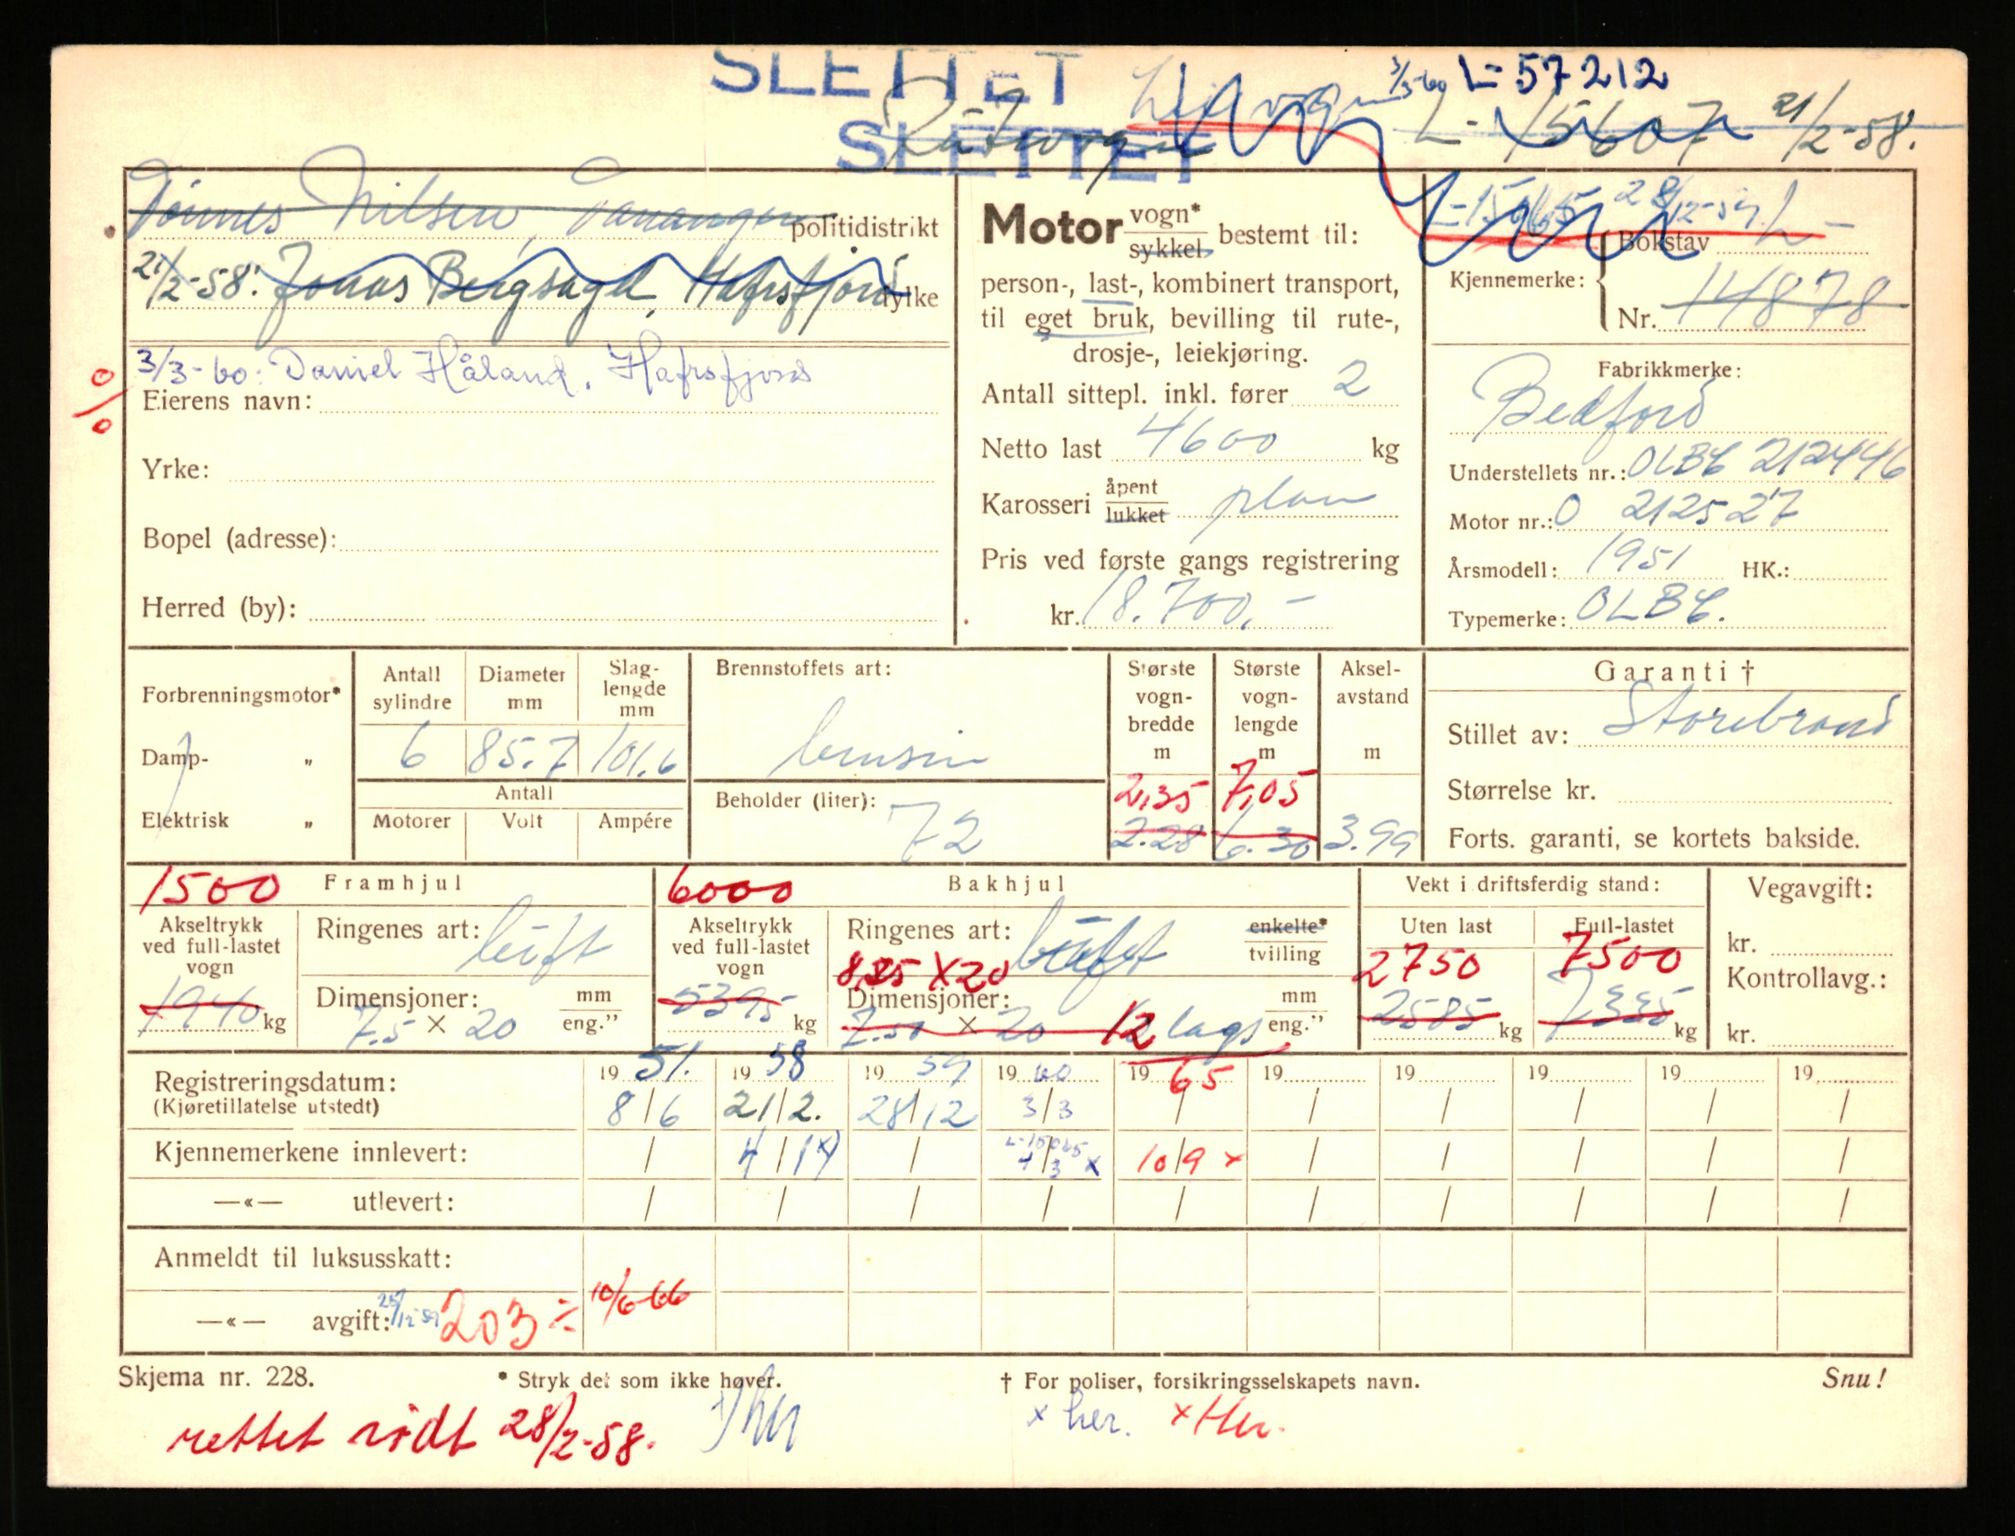 SLETTET
3/3-60 L-57212
SLETTET
L-15607 21/2-58.
Tønnes Nilsen, Tananger politidistrikt
21/2-58: Jonas Bergsagel, Hafrsfjord fylke
3/3-60: Daniel Håland. Hafrsfjord
Eierens navn:
Yrke:
Bopel (adresse):
Herred (by):
Motor vogn* sykkel bestemt til:
person-, last-, kombinert transport,
til eget bruk, bevilling til rute-,
drosje-, leiekjøring.
Antall sittepl. inkl. fører 2
Netto last 4600 kg
Karosseri åpent lukket plan
Pris ved første gangs registrering
kr. 18.700,-
28/12-59.
Kjennemerke: Bokstav L-
Nr. 14878
Fabrikkmerke:
Bedford
Understellets nr.: OLBC 212446
Motor nr.: O 212527
Årsmodell: 1951 HK.:
Typemerke: OLBC.
Forbrenningsmotor*
Damp- "
Elektrisk "
Antall sylindre 6
Diameter mm 85.7
Slag-lengde mm 101.6
Antall
Motorer Volt Ampére
Brennstoffets art:
bensin
Beholder (liter): 72
Største vogn-bredde m 2,35 2.28
Største vogn-lengde m 7,05 6.30
Aksel-avstand m 3.99
Garanti †
Stillet av: Storebrand
Størrelse kr.
Forts. garanti, se kortets bakside.
1500 Framhjul
Akseltrykk ved full-lastet vogn
1940 kg
Ringenes art: luft
Dimensjoner: mm eng."
7.5 × 20
6000 Bakhjul
Akseltrykk ved full-lastet vogn
5395 kg
Ringenes art: luft enkelte* tvilling
8,25 X 20
Dimensjoner: mm eng."
7.50 × 20 12 lags
Vekt i driftsferdig stand:
Uten last Full-lastet
2750 7500
2585 kg 7335 kg
Vegavgift:
kr.
Kontrollavg.:
kr.
Registreringsdatum: 19 51. 19 58 19 59 19 60 19 65 19 19 19 19 19
(Kjøretillatelse utstedt) 8/6 21/2. 28/12 3/3 / / / / / /
Kjennemerkene innlevert: / / 10/9 x / / / / /
—«— utlevert: / / / / / / / / / /
Anmeldt til luksusskatt:
—«— avgift: 203 10/6-66
Skjema nr. 228.
* Stryk det som ikke høver.
† For poliser, forsikringsselskapets navn.
Snu!
rettet rødt 28/2-58.
x her. x Her.